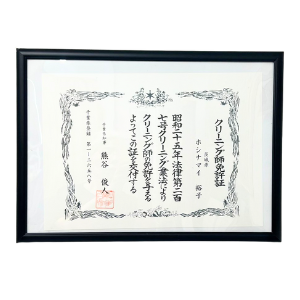 クリーニング師免許証
茨城県
ホシナマイ 裕子
昭和二十五年法律第二百
七号クリーニング業法により
クリーニング師の免許を与える
よってこの証を交付する
千葉県知事
熊谷俊人
千葉県登録 第一一三六五八号